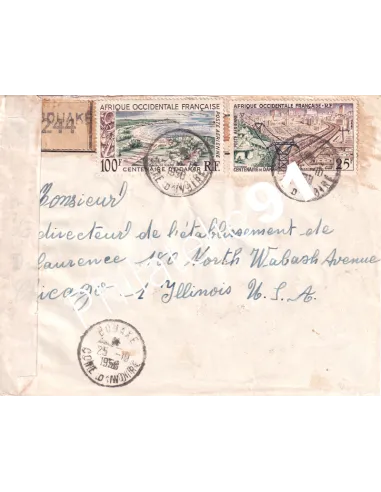 BOUAKÉ
244
AFRIQUE OCCIDENTALE FRANÇAISE
POSTE AÉRIENNE
100F
CENTENAIRE DE DAKAR
RF
AFRIQUE OCCIDENTALE FRANÇAISE-RF
CENTENAIRE DE DAKAR
25F
Monsieur
directeur de l'établissement de
Laurence 180 North Wabash Avenue
Chicago - 1 Illinois U.S.A.
BOUAKÉ
25-10
1958
CÔTE D'IVOIRE